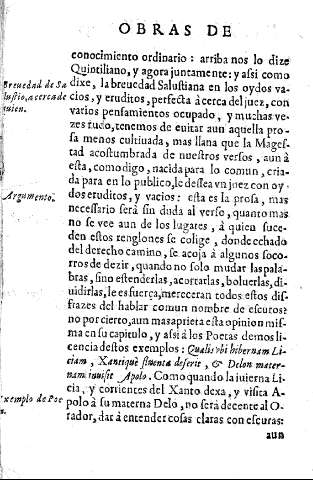 OBRAS DE
conocimiento ordinario: arriba nos lo dize
Quintiliano, y agora juntamente: y assi como
Breuedad de Sa
dixe, la breuedad Salustiana en los oydos va-
lustio, a cerca de
cios, y eruditos, perfecta à cerca del juez, con
quien.
varios pensamientos ocupado, y muchas ve-
zes rudo, tenemos de euitar aun aquella pro-
sa menos cultiuada, mas llana que la Mages-
tad acostumbrada de nuestros versos, aun à
esta, como digo, nacida para lo comun, cria-
da para en lo publico, le dessea vn juez con oy-
Argumento.
dos eruditos, y vacios: esta es la prosa, mas
necessario serà sin duda al verso, quanto mas
no se vee aun de los lugares, à quien suce-
den estos renglones se colige, donde echado
del derecho camino, se acoja à algunos soco-
rros de dezir, quando no solo mudar las pala-
bras, sino estenderlas, acortarlas, boluerlas, di-
uidirlas, le es fuerça, mereceran todos estos dis-
frazes del hablar comun nombre de escuros?
no por cierto, aun mas aprieta esta opinion mis-
ma en su capitulo, y assi à los Poetas demos li-
cencia destos exemplos: Qualis vbi hibernam Li-
ciam, Xantique fluenta deserit, & Delon mater-
nam inuisit Apolo. Como quando la iuierna Li-
cia, y corrientes del Xanto dexa, y visita A-
Exemplo de Poe
polo à su materna Delo, no serà decente al O-
rador, dar à entender cosas claras con escuras:
aun